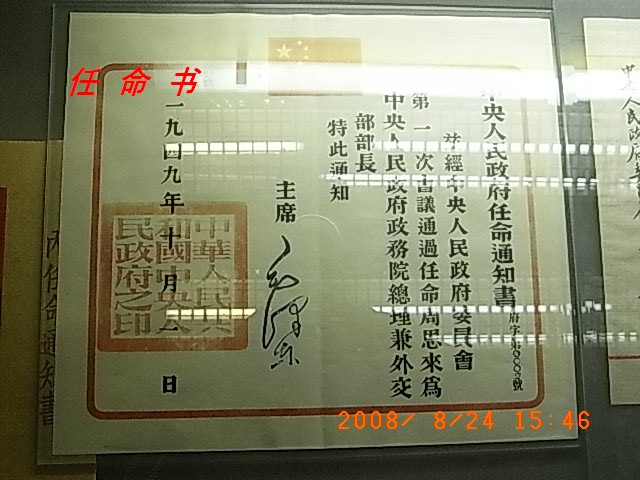 任命书
中央人民政府任命通知書
府字第
號
經中央人民政府委員會
第一次會議通過任命周恩來為
中央人民政府政務院總理兼外交
部部長
特此通知
主席
毛澤東
一九四九年十月一日
中華人民共
和國中央人
民政府之印
任命通知書
2008/ 8/24 15:46